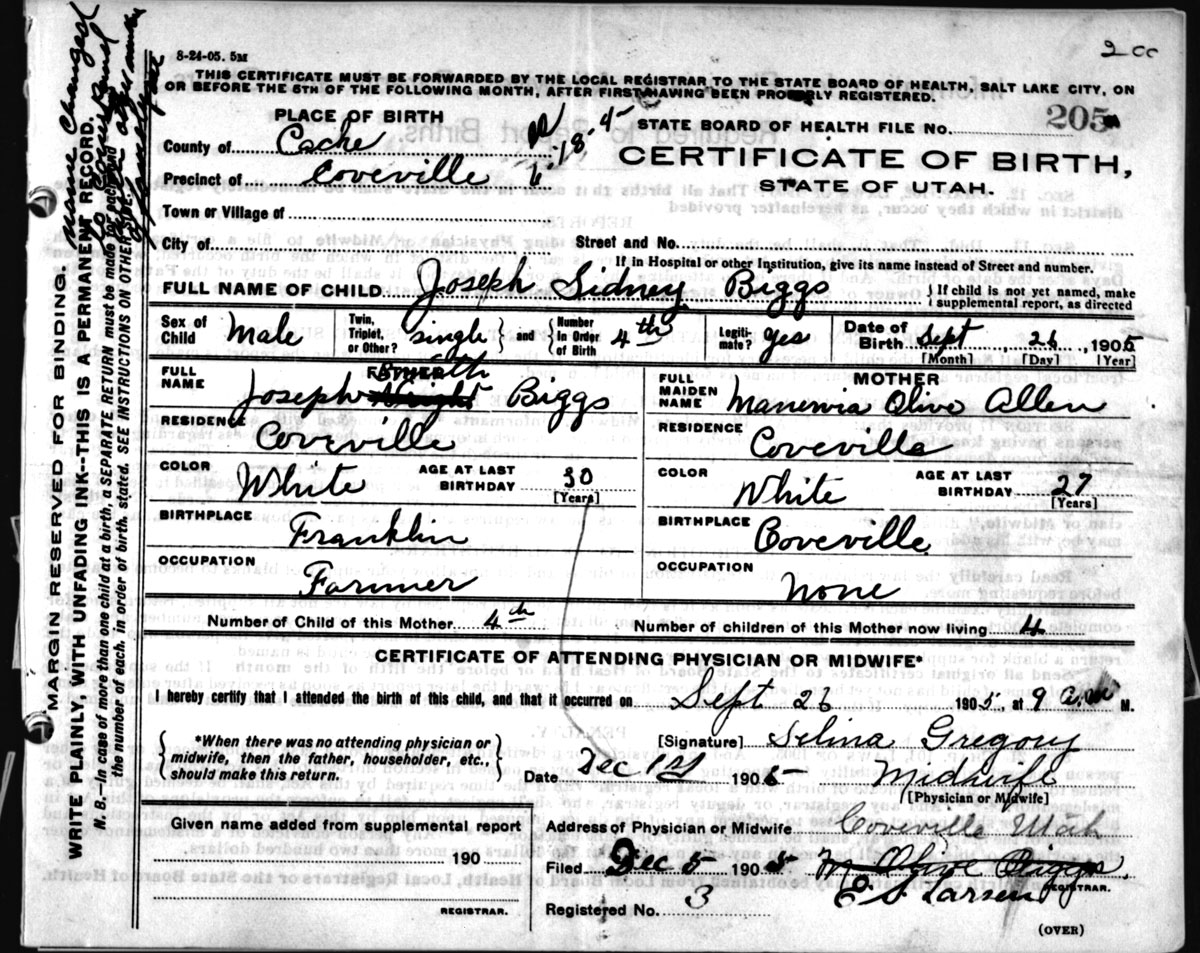 8-24-05. 5M
2 cc
THIS CERTIFICATE MUST BE FORWARDED BY THE LOCAL REGISTRAR TO THE STATE BOARD OF HEALTH, SALT LAKE CITY, ON
OR BEFORE THE 5TH OF THE FOLLOWING MONTH, AFTER FIRST HAVING BEEN PROPERLY REGISTERED.
PLACE OF BIRTH
STATE BOARD OF HEALTH FILE NO. 205
County of Cache
CERTIFICATE OF BIRTH,
Precinct of Coveville
STATE OF UTAH.
Town or Village of
City of
Street and No.
If in Hospital or other Institution, give its name instead of Street and number.
FULL NAME OF CHILD Joseph Sidney Biggs
{If child is not yet named, make
supplemental report, as directed
Sex of Child Male
Twin, Triplet, or Other? single } and { Number In Order of Birth 4th
Legiti-mate? yes
Date of Birth Sept, 26, 1905
[Month] [Day] [Year]
FATHER
FULL NAME Joseph Smith Wright Biggs
RESIDENCE Coveville
COLOR White
AGE AT LAST BIRTHDAY 30
[Years]
BIRTHPLACE Franklin
OCCUPATION Farmer
MOTHER
FULL MAIDEN NAME Manerva Olive Allen
RESIDENCE Coveville
COLOR White
AGE AT LAST BIRTHDAY 27
[Years]
BIRTHPLACE Coveville
OCCUPATION None
Number of Child of this Mother 4th
Number of children of this Mother now living 4
CERTIFICATE OF ATTENDING PHYSICIAN OR MIDWIFE*
I hereby certify that I attended the birth of this child, and that it occurred on Sept 26 1905, at 9 a.m M.
{*When there was no attending physician or
midwife, then the father, householder, etc.,
should make this return.}
[Signature] Selina Gregory
Date Dec 1st 1905 Midwife
[Physician or Midwife]
Given name added from supplemental report
190
REGISTRAR.
Address of Physician or Midwife Coveville Utah
Filed Dec 5 1905 M Olive Biggs
REGISTRAR.
C. S. Larsen
Registered No. 3
(OVER)
MARGIN RESERVED FOR BINDING.
WRITE PLAINLY, WITH UNFADING INK--THIS IS A PERMANENT RECORD.
N. B.--In case of more than one child at a birth, a SEPARATE RETURN must be made for each, and
the number of each, in order of birth, stated. SEE INSTRUCTIONS ON OTHER SIDE.
name changed